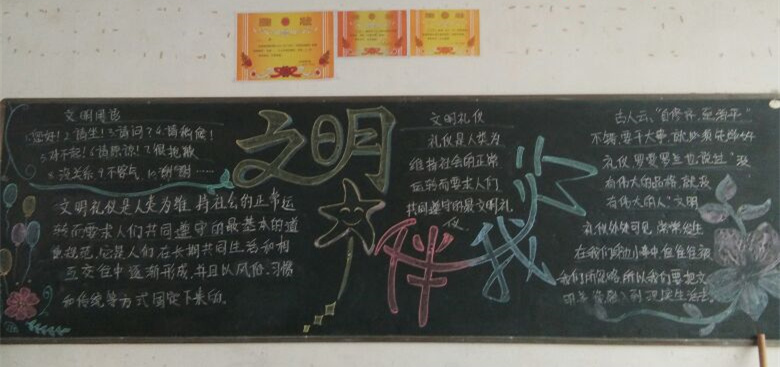 奖状
文明用语
1.您好！2.请坐！3.请问？4.请稍候！
5.对不起！6.请原谅！7.很抱歉
8.没关系 9.不客气，10.谢谢……
文明礼仪是人类为维持社会的正常运
转而要求人们共同遵守的最基本的道
德规范，它是人们在长期共同生活和相
互交往中逐渐形成，并且以风俗、习惯
和传统等方式固定下来的。
文明
伴我
文明礼仪
礼仪是人类为
维持社会的正常
运转而要求人们
共同遵守的最文明礼
仪。
古人云："自修齐，至治平"
不错，要干大事，就必须先学好
礼仪 罗曼罗兰也说过"没
有伟大的品格，就没
有伟大的人"文明
礼仪处处可见，常常发生
在我们身边小事中，但往往被
我们所忽略，所以我们要把文